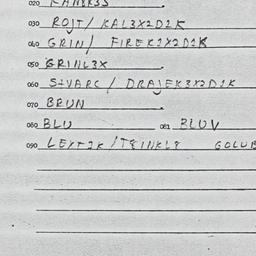 020 KAHBKSS
030 ROJT/ KAL3X2D2K
040 GRIN/ FIREK2X2D2K
050 GRINL3X
060 S2VARC/ DRAJEK3X2D2K
070 BRUN
080 BLU 081 BLUV
090 LEXT2K/T8INKL8 GOLUB